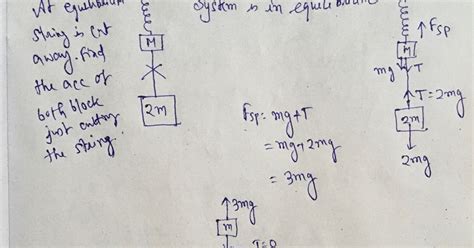 At equilibrium
string is cut
away. find
the acc of
both block
just cutting
the string.
System is in equilibrium
M
2m
Fsp
M
mg
T
T=2mg
2m
2mg
Fsp= mg+T
= mg+2mg
= 3mg
3mg
m
T=0